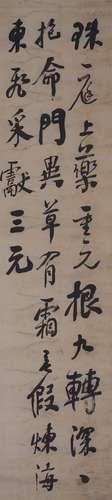 珠庭上藥重元根九轉深〻
抱命門異草有霜假煉海
東飛采獻三元